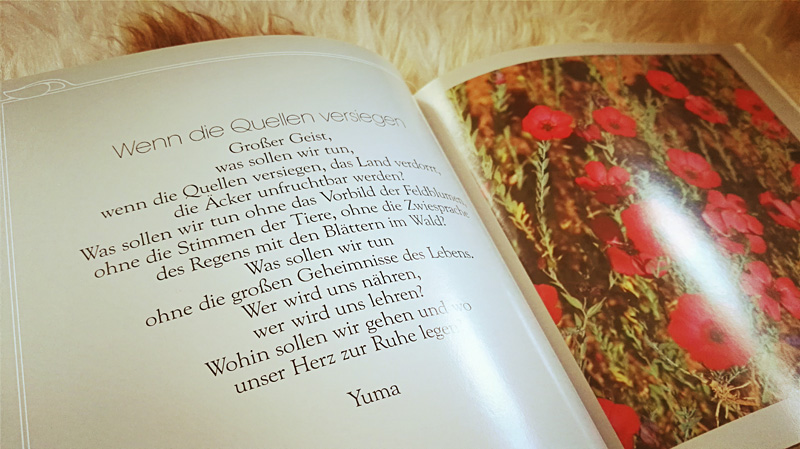 Wenn die Quellen versiegen
Großer Geist,
was sollen wir tun,
wenn die Quellen versiegen, das Land verdorrt,
die Äcker unfruchtbar werden?
Was sollen wir tun ohne das Vorbild der Feldblumen,
ohne die Stimmen der Tiere, ohne die Zwiesprache
des Regens mit den Blättern im Wald?
Was sollen wir tun
ohne die großen Geheimnisse des Lebens.
Wer wird uns nähren,
wer wird uns lehren?
Wohin sollen wir gehen und wo
unser Herz zur Ruhe legen?
Yuma